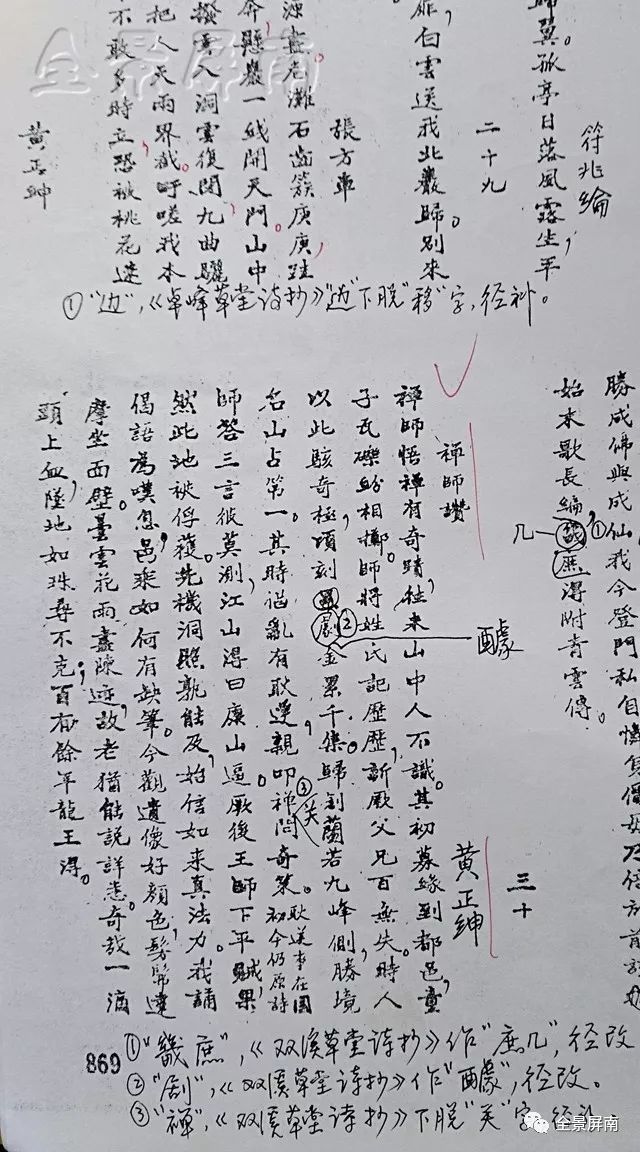 符兆綸
翼。孤亭日落風露生,平
二十九
扉,白雲送我北巖歸。别來
張方車
源盡危灘石齒簇庚庚,
奔懸巖一綫開天阿山中
撥雲入洞雲復閉九曲驪
把人天雨界截。吁嗟我本
不敢多時立恐被桃花迷
黄正紳
①"边",《卓峰草堂诗抄》"边"下脱"移"字,径补。
勝成佛與成仙①我今登門私自
始末歌長編,幾庶得附青雲傳。
几
三十
禪師讚
黄正紳
禪師悟禪有奇蹟,往来山中人不識。其初募緣到都邑,童
子瓦礫紛相擲。師將姓氏記歴歴,訴厥父兄百無失。時人
以此駭奇極,頃刻劇②金累千集。歸創蘭若九峰側,勝境
醵
名山占第一。其時倡亂有耿逆,親叩禅③关問奇策。
師答三言彼莫測,江山得曰康山逼。厥後王師下平賊,果
然此地被俘獲。先機洞照孰能及,始信如来真法力。我誦
偈語為嘆息,邑乘如何有缺筆。今觀遺像好顔色,
摩坐面壁。曇雲花雨盡陳迹,故老猶能説詳悉。奇哉一滴
頭上血,墜地如珠尋不克;百有餘年龍王得。
①"幾庶",《双溪草堂诗抄》作"庶几",径改
②"劇",《双溪草堂诗抄》作"醵",径改。
③"禅",《双溪草堂诗抄》下脱"关"字,径补
869
全景屏南
全景屏南